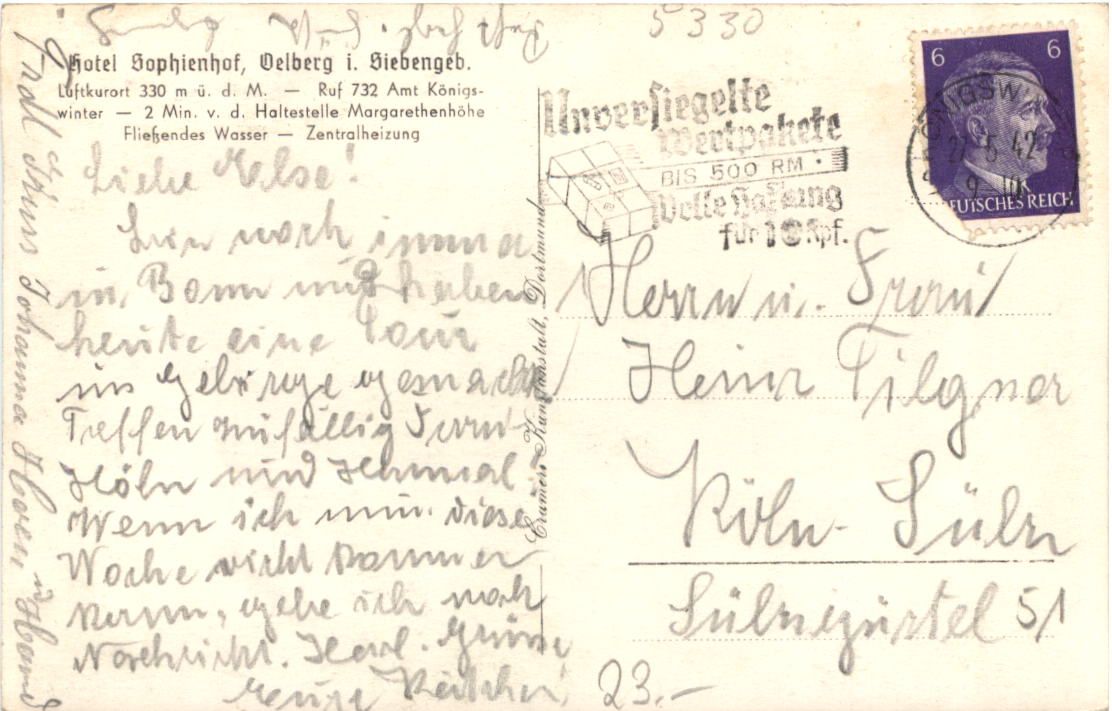 5330
Hotel Sophienhof, Oelberg i. Siebengeb.
Luftkurort 330 m ü. d. M. — Ruf 732 Amt Königs-
winter — 2 Min. v. d. Haltestelle Margarethenhöhe
Fließendes Wasser — Zentralheizung
Liebe Else!
noch immer
in Bonn und haben
heute eine Tour
ins Gebirge gemacht
Treffen zufällig
Höhn und
Wenn ich nun diese
Woche nicht kommen
kann, gebe ich noch
Nachricht. Herzl. Grüße
Johanna
Cramers Kunstanstalt, Dortmund
Unversiegelte
Wertpakete
BIS 500 RM
Volle Haftung
für 10 Rpf.
6 6
DEUTSCHES REICH
KÖNIGSW
27 5 42
9-10
Herrn u. Frau
Heinr Tilgner
Köln-Sülz
Sülzgürtel 51
23.-